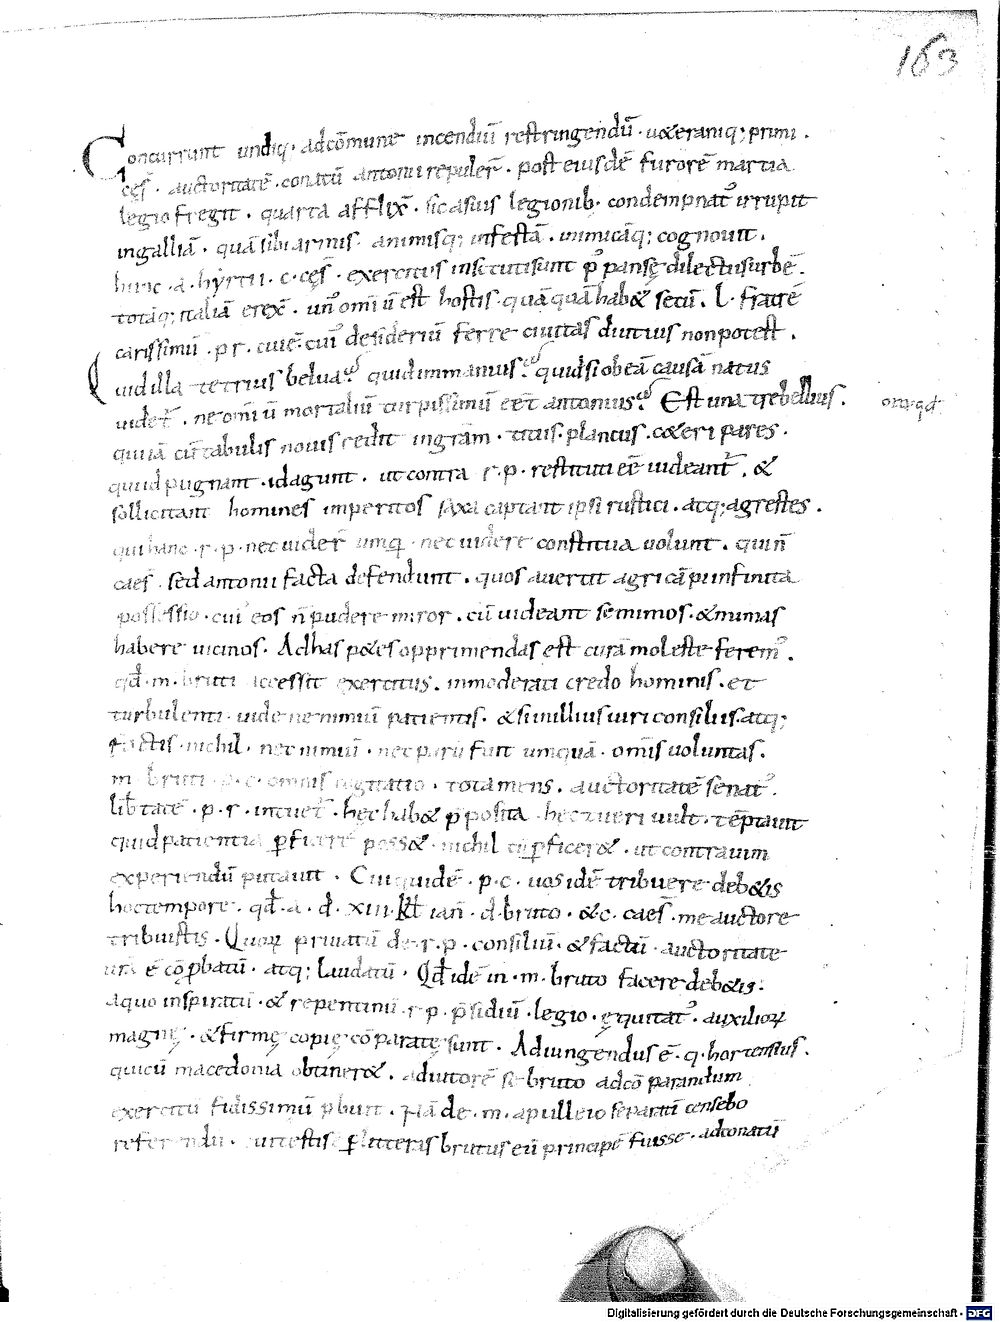 163
Concurrunt undiq; adcōmune incendiū restringendū · u&eraniq; primi ·
cęs̄ · auctoritatē · conatū antonii repuler̄ · post eiusdē furorē martia
legio fregit · quarta afflix̄ · sic asuis legionib; condempnat irrupit
ingalliā · quā sibi armis animisq; infestā · inimicāq; cognouit ·
hunc · a · hyrtii · c · cęs̄ · exercitus insecuti sunt p pansę dilectus urbē ·
totāq; italiā erex̄ · un omīū est hostis · quāquā hab& secū · L · fratrē
carissimū · p r · cui ē cui desideriū ferre ciuitas diutius non potest ·
Quid illa tetrius belua · quid immanius · qui dsi ob eā causā natus
uidet̄ · ne omīū mortaliū turpissimū eēt antonius · Est una trebellius ·
oratqd
quiiā cū tabulis nouis redit ingrām · titus · plancus · c&eri pares ·
quid pugnant · idagunt · ut contra r · p · restituti eē uideant̄ · &
sollicitant homines imperitos saxa captant ipsi rustici · atq; agrestes ·
qui hanc · r · p · nec uider̄ umq · nec uidere constituta uolunt · qui n̄
caes̄ · sed antonii facta defendunt · quos auertit agri cāpi infinita
possessio · cui eos n̄ pudere miror · cū uideant se mimos · & mimas
habere uicinos · Adhas p&es opprimendas est curā moleste ferem ·
qd̄ · m · bruti accessit exercitus · inmoderati credo hominis · et
turbulenti · uide ne nimiū patientis · & si in illius uiri consiliis · atq;
factis · nichil · nec nimiū · nec parū fuit umquā · omīs uoluntas ·
m · bruti · p · c · omnis cogitatio · tota mens · auctoritatē senat ·
lib̄tatē · p · r · intuet̄ · hęc hab& pposita hec tueri uult · tēptauit
quid patientia pficere poss& · nichil cū pficer& · ut contra uim
experiendū putauit · Cui quidē · p · c · uos idē tribuere deb&is
hoc tempore · qd̄ · a · d · xiii · kl̄ ian̄ · d · bruto · & c · caes̄ · me auctore
tribuistis · Quorum priuatū de · r · p · consiliū · & factū · auctoritate
ur̄a ē cōpbatū · atq; laudatū · Qd̄ idē in · m · bruto facere deb&is ·
aquo insperatū · & repentinū r · p · p̄sidiū · legio · ęquitat · auxiliorum
magnę · & firmę copię cōparatę sunt · Adiungendus ē · q · hortensius ·
qui cū macedonia obtiner& · adiutorē se bruto adcō parandum
exercitū fidissimū pbuit · Nā de · m · apulleio separatī censebo
referendū · cui testis p litteras brutus eū principē fuisse · adconatū
Digitalisierung gefördert durch die Deutsche Forschungsgemeinschaft · DFG